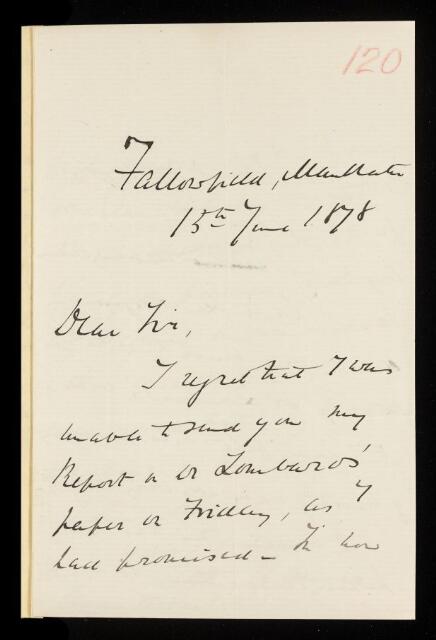 120
Fallowfield, Manchester
15th June 1878
Dear Sir,
I regret that I was
unable to send you my
Report on Dr Lombard's
paper on Friday, as I
had promised - It